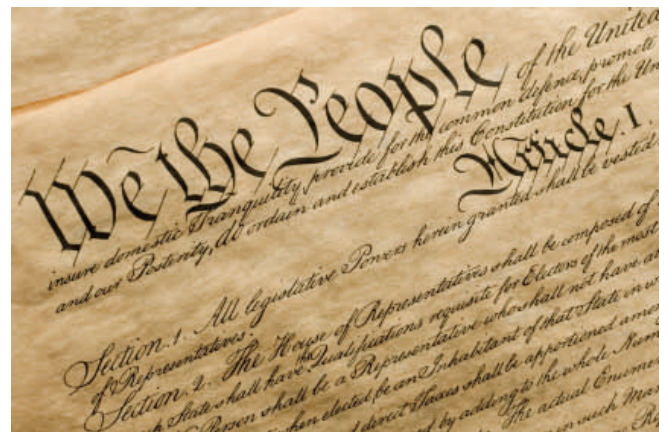 We the People of the United
insure domestic Tranquility, provide for the common defence, promote
and our Posterity, do ordain and establish this Constitution for the Un
Article. I.
Section. 1. All legislative Powers herein granted shall be vested
of Representatives.
Section. 2. The House of Representatives shall be composed of
State shall have Qualifications requisite for Electors of the most
Person shall be a Representative who shall not have
when elected be an Inhabitant of that State in w
direct Taxes shall be apportioned amo
by adding to the whole Num
The actual Enumer
such Man